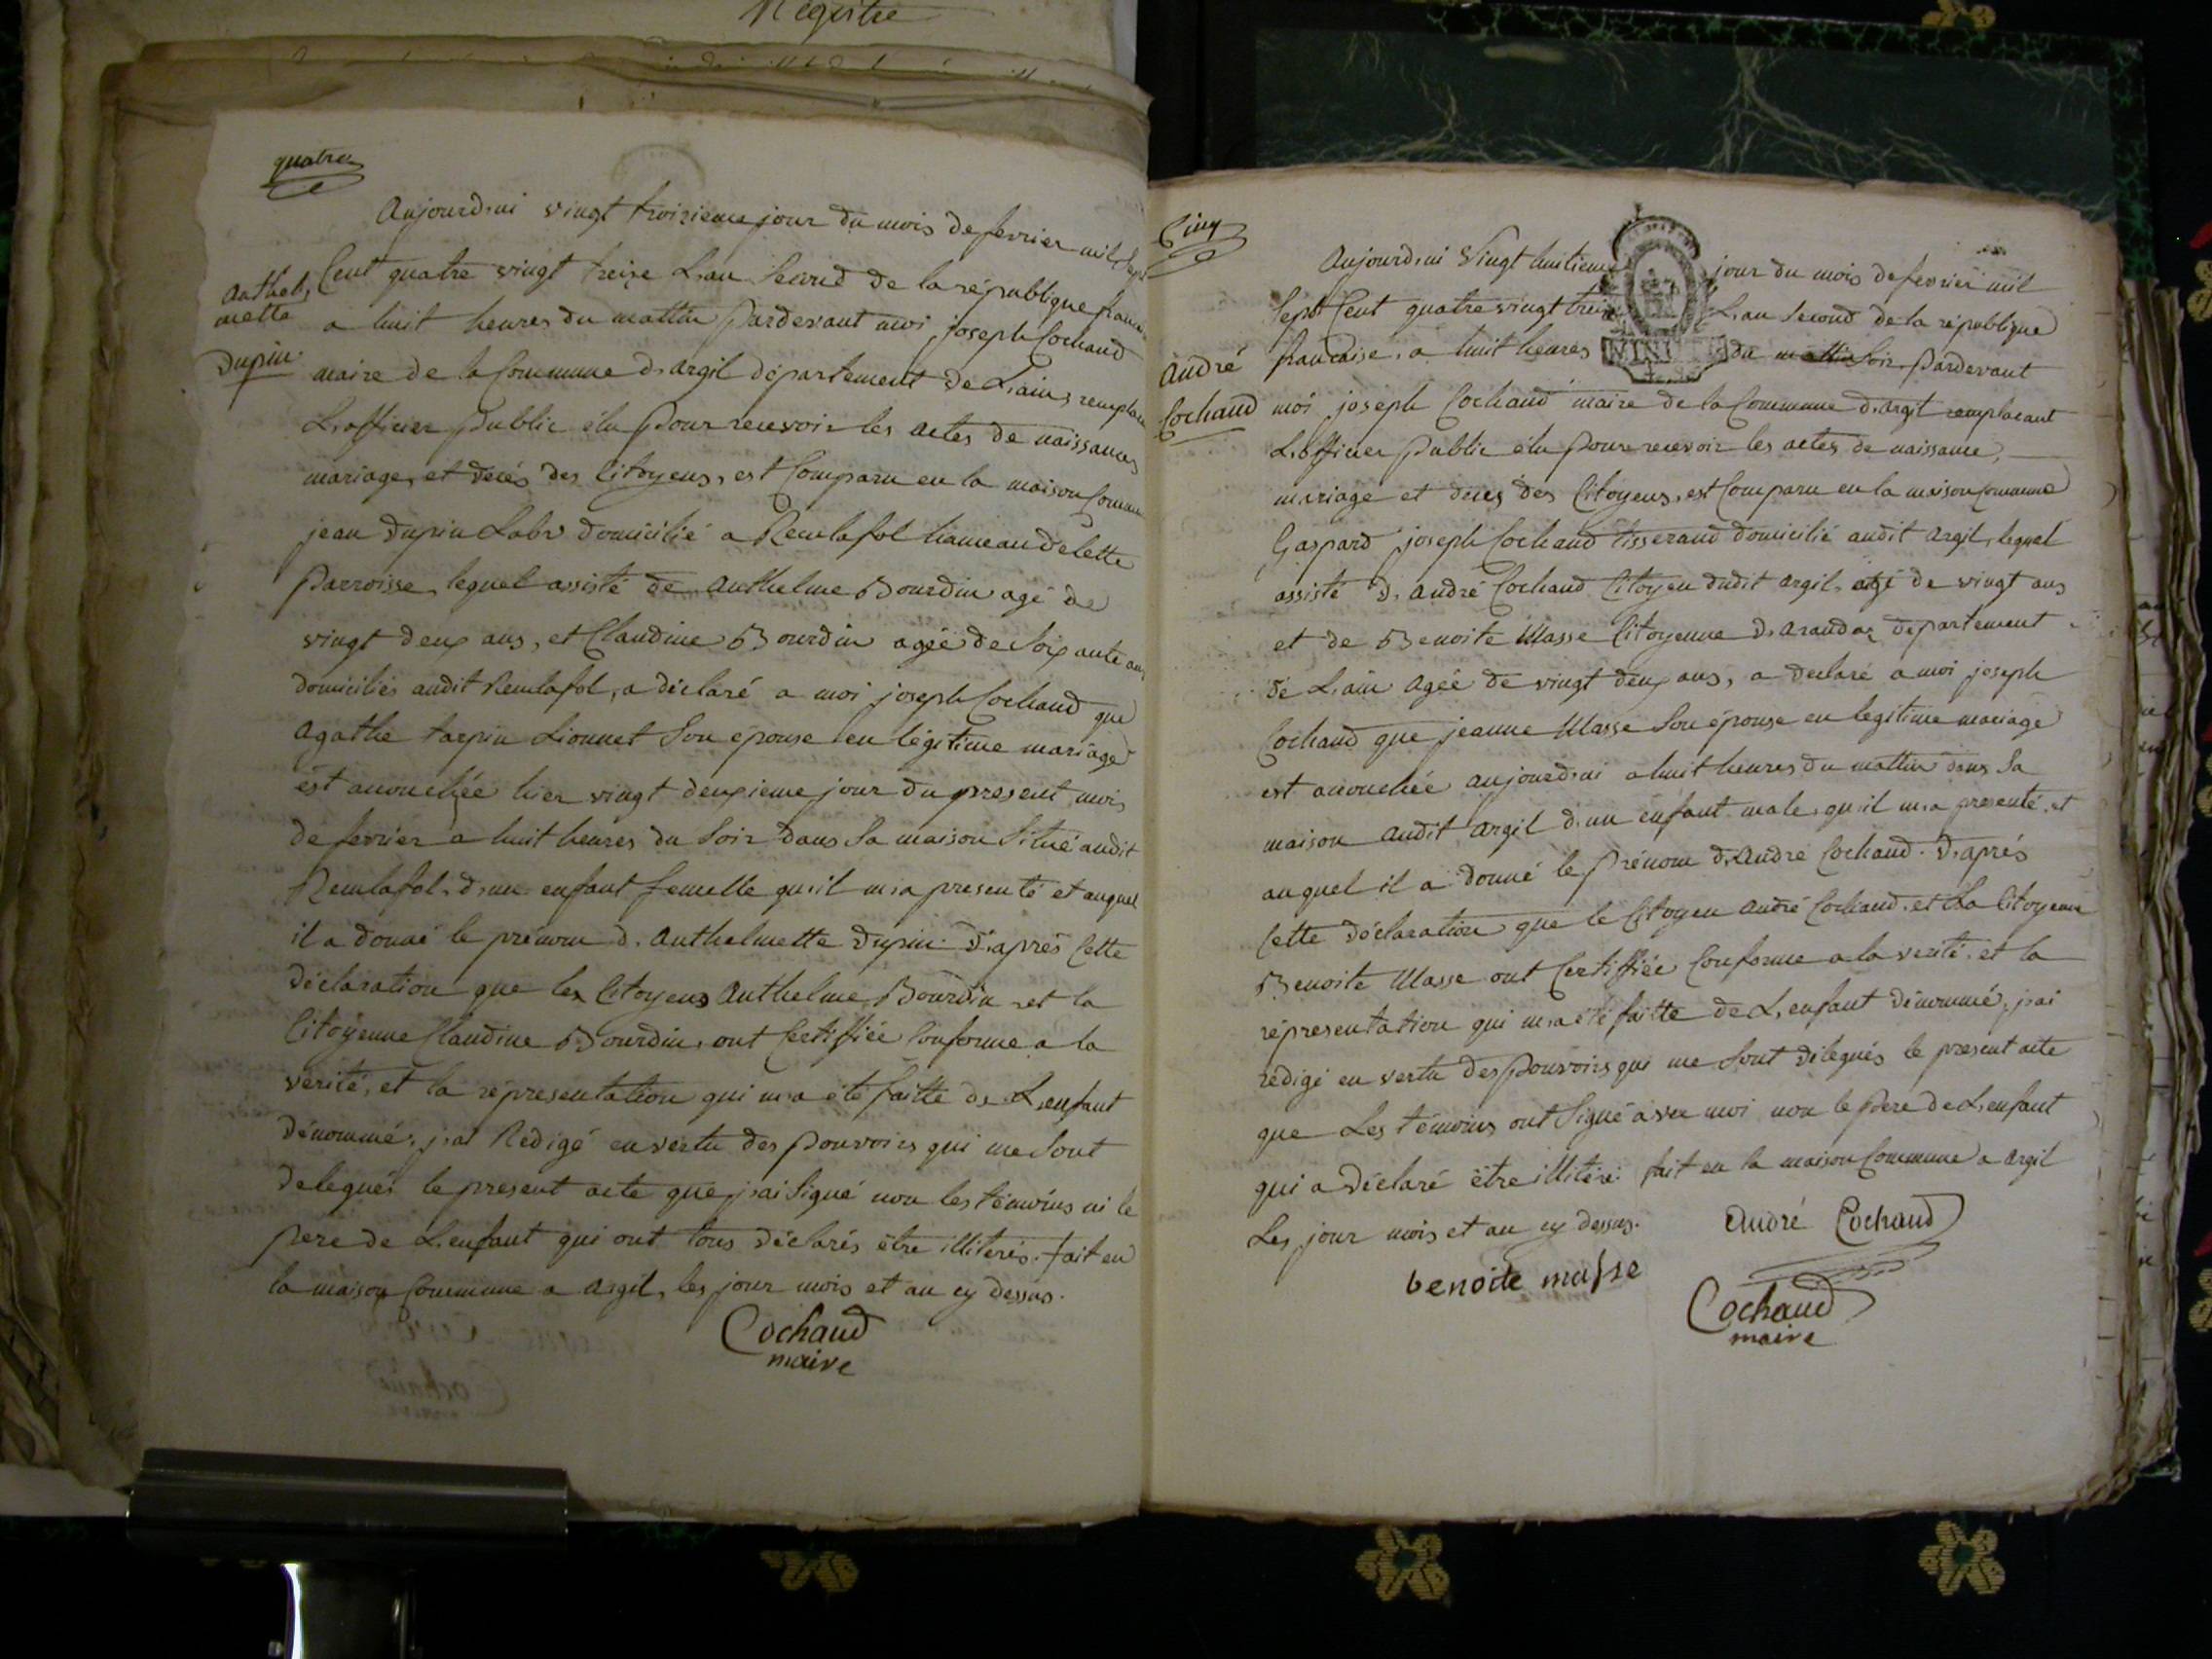 Registre
quatre
Aujourd'hui vingt troisieme jour du mois de fevrier mil sept
Cent quatre vingt treize L'an second de la république
anthel,
mette
Dupin
a huit heures du mattin pardevant moi joseph Cochaud
maire de la Commune d'argil département de L'ain,
L'officier public élu pour recevoir les actes de naissances
mariage, et decés des Citoyens, est Comparu en la maison
jean dupin Labr domicilié a Remlafol hameau de lette
parroisse, lequel assisté de Anthelme Bourdin agé de
vingt deux ans, et Claudine Bourdin agée de soixante ans
domiciliés audit Remlafol, a déclaré a moi joseph Cochaud que
agathe tarpin Lionnet son épouse en légitime mariage
est accouchée hier vingt deuxieme jour du present mois
de fevrier a huit heures du soir dans sa maison situé audit
Remlafol, d'une enfant femelle qu'il m'a presenté et auquel
il a donné le prénom d'Anthelmette Dupin. D'après Cette
déclaration que les Citoyens Anthelme Bourdin et la
Citoyenne Claudine Bourdin, ont Certiffiée Conforme a la
vérité, et la répresentation qui m'a été faitte de L'enfant
dénommé, j'ai Rédigé en vertu des pouvoirs qui me sont
delegués le present acte que j'ai signé non les témoins ni le
pere de L'enfant qui ont tous déclarés être illiterés. fait en
la maison Commune a argil, les jour mois et an cy dessus.
Cochaud
maire
Cinq
Aujourd'hui Vingt huitieme jour du mois de fevrier mil
Sept Cent quatre vingt treize L'an second de la république
andré
Cochaud
francaise, a huit heures du mattin soir pardevant
moi joseph Cochaud maire de la Commune d'argil remplacant
L'officier public élu pour recevoir les actes de naissance,
mariage et décés des Citoyens, est Comparu en la maison commune
Gaspard joseph Cochaud tisserand domicilié audit argil, lequel
assisté d'andré Cochaud Citoyen dudit argil, agé de vingt ans
et de Benoite Masse Citoyenne d'arandas département
de L'ain agée de vingt deux ans, a declaré a moi joseph
Cochaud que jeanne Masse son épouse en legitime mariage
est accouchée aujourd'hui a huit heures du mattin dans sa
maison audit argil d'un enfant male, qu'il m'a presenté, et
auquel il a donné le prénom d'André Cochaud. D'après
Cette déclaration que le Citoyen André Cochaud, et La Citoyenne
Benoite Masse ont Certiffiée Conforme a la verité, et la
répresentation qui m'a été faitte de L'enfant dénommé, j'ai
rédigé en vertu des pouvoirs qui me sont délegués le present acte
que Les témoins ont signé avec moi non le pere de L'enfant
qui a déclaré être illiteré fait en la maison Commune a argil
Les jour mois et an cy dessus.
André Cochaud
benoite masse
Cochaud
maire